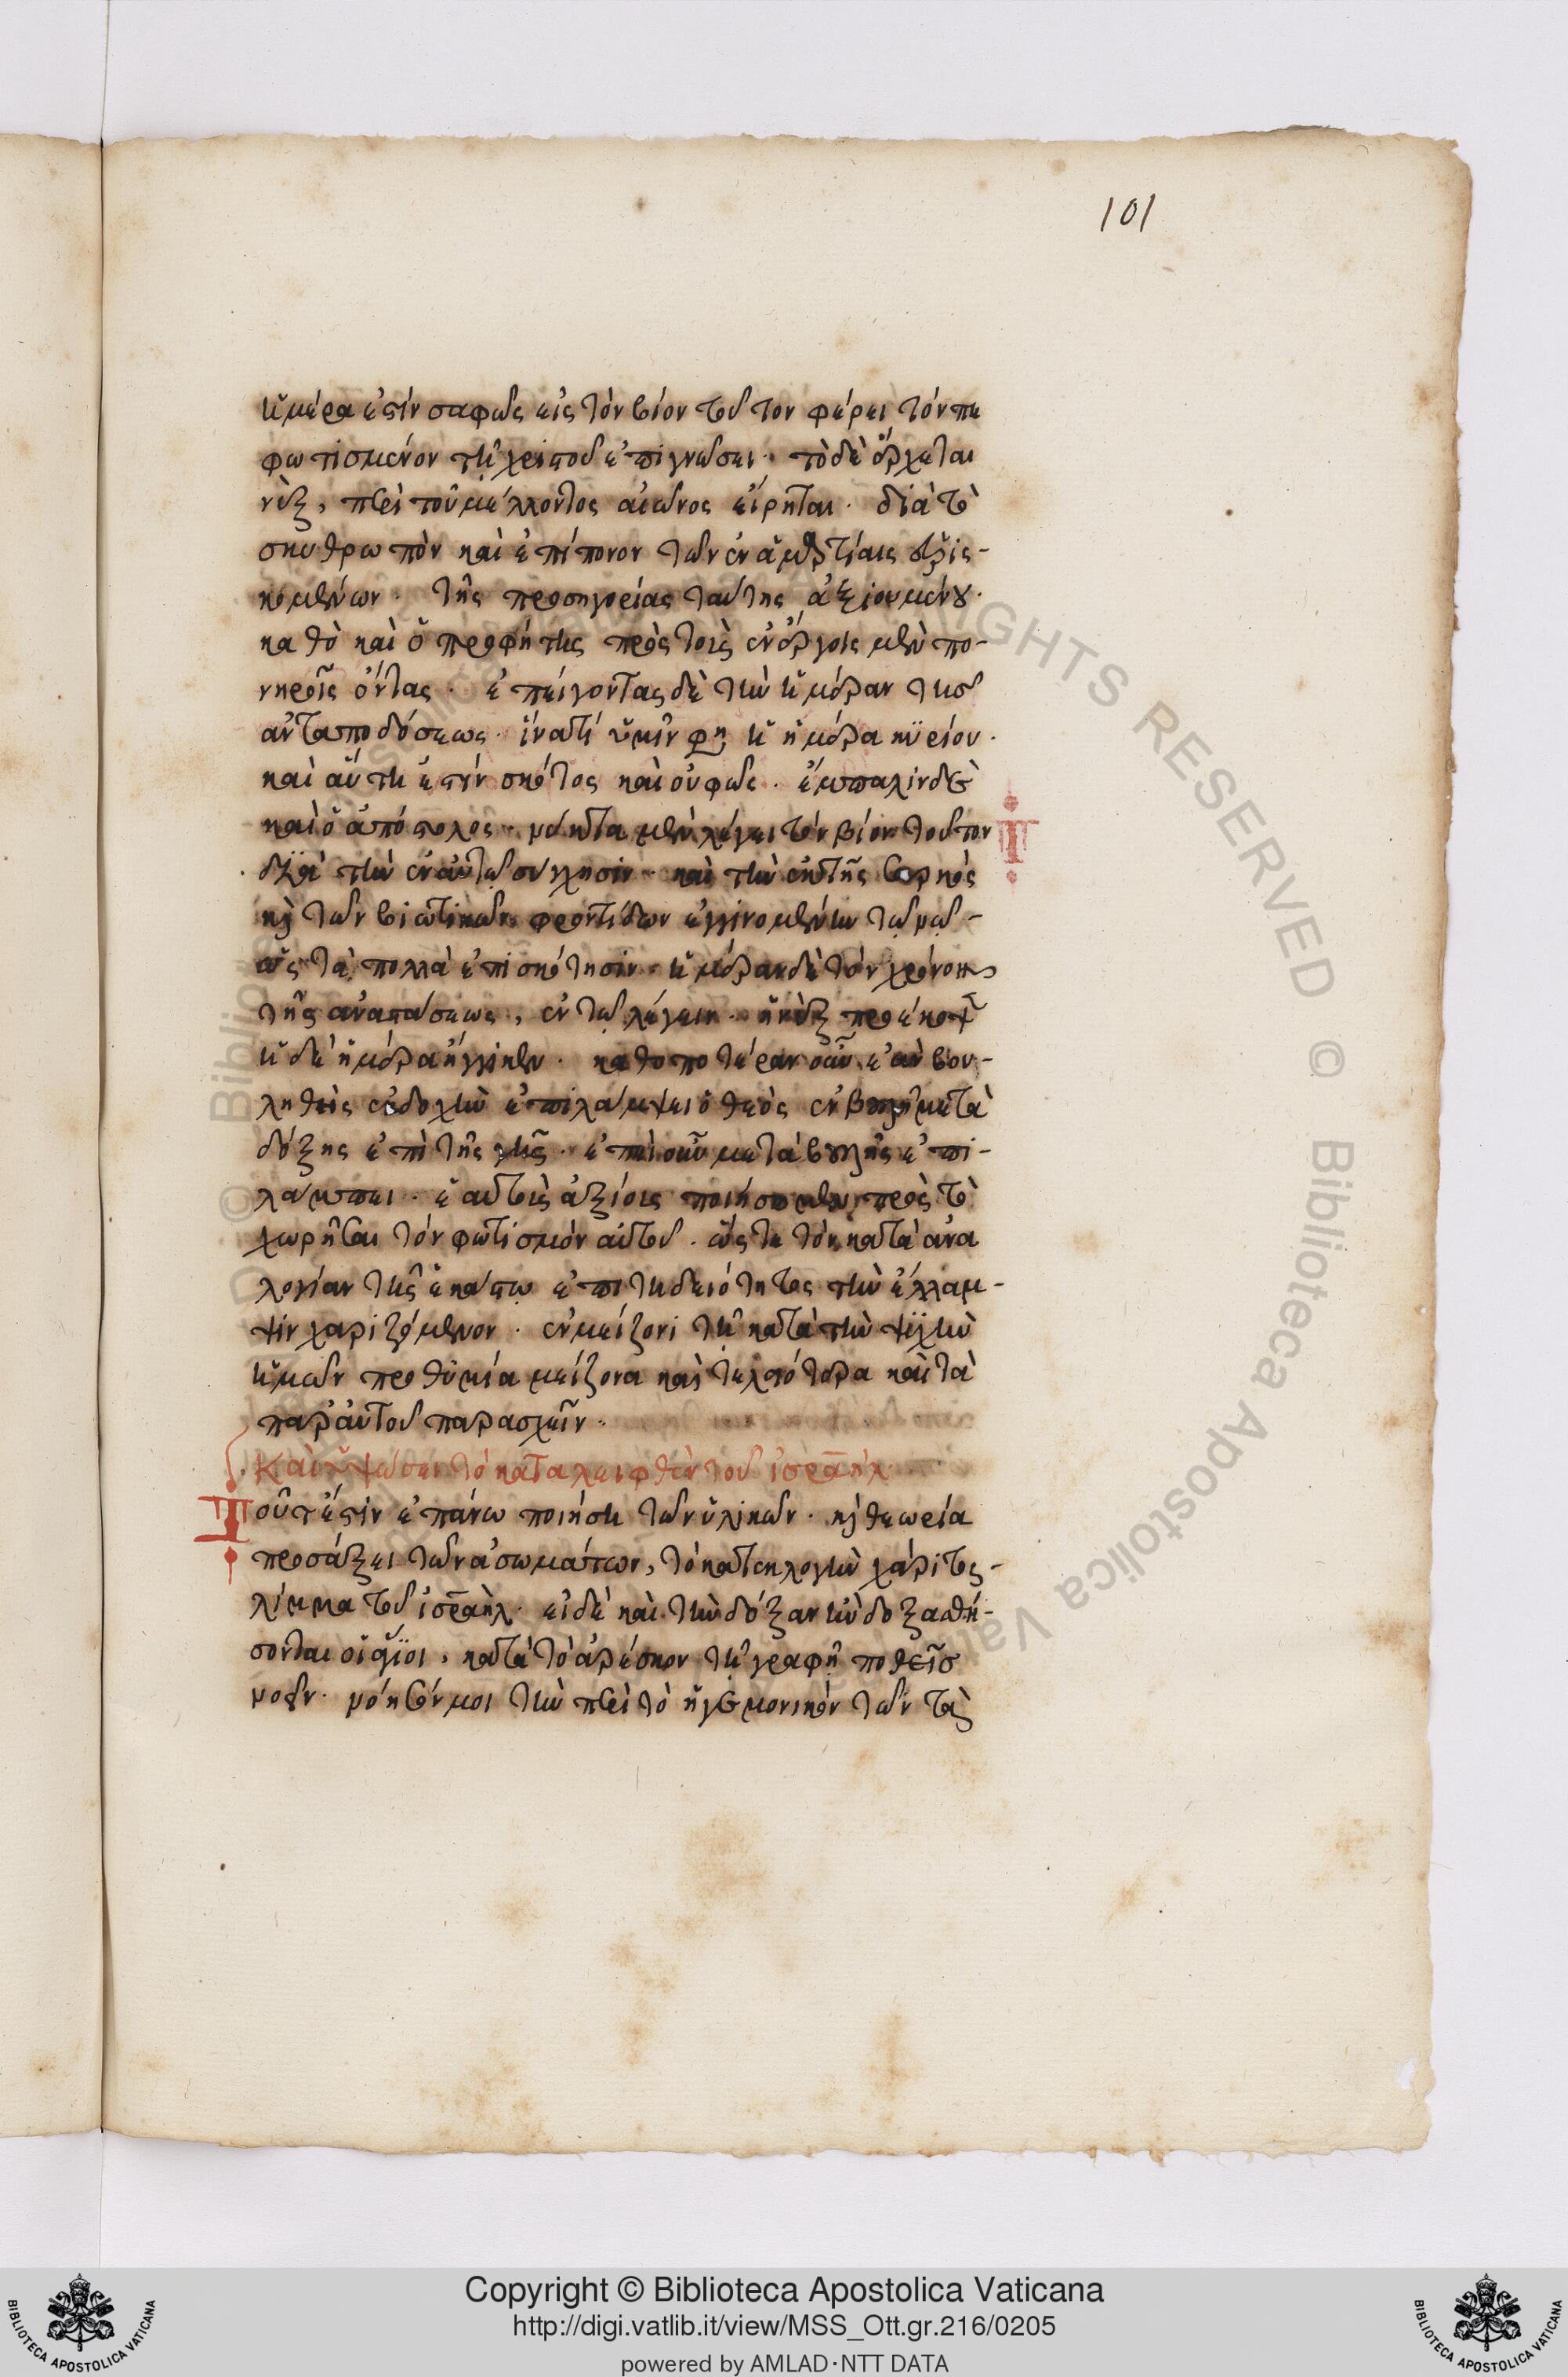 101
ἡμέρα ἐστίν σαφῶς εἰς τὸν βίον τοῦτον φέρει τόν πε
φωτισμένον τῇ χριστοῦ ἐπιγνώσει. τὸ δὲ ἔρχεται
νὺξ, περὶ τοῦ μέλλοντος αἰῶνος εἴρηται. διὰ τὸ
σκυθρωπὸν καὶ ἐπίπονον τῶν ἐν ἁμαρτίαις εὑρισ-
κομένων. τῆς προσηγορίας ταύτης ἀξιουμένου.
καθὸ καὶ ὁ προφήτης πρὸς τοὺς ἐν ἔργοις μὲν πο-
νηροῖς ὄντας. ἐπείγοντας δὲ τὴν ἡμέραν τῆσ
ἀνταποδόσεως. ἵνα τί ὑμῖν φη ἡ ἡμέρα κυρίου.
καὶ αὕτη ἐστίν σκότος καὶ οὐ φῶς. ἔμπαλιν δὲ
καὶ ὁ ἀπόστολος. νύκτα μὲν λέγει τὸν βίον τοῦτον
διὰ τὴν ἐν αὐτῷ σύγχησιν. καὶ τὴν ἐκ τῆς σαρκός
καὶ τῶν βιωτικῶν φροντίδων ἐγγινομένην τῷ νῷ
ὡς τὰ πολλὰ ἐπισκότησιν. ἡμέραν δὲ τὸν χρόνον
τῆς ἀναστάσεως, ἐν τῷ λέγειν. ἡ νὺξ προέκοψ
ἡ δὲ ἡμέρα ἤγγικεν. καθοποτέραν οὖν ἐὰν βου-
ληθεὶς ἐκδοχὴν ἐπιλάμψει ὁ θεὸς ἐν βουλῇ μετὰ
δόξης ἐπὶ τῆς γῆς. ἐπεὶ οὖν μετὰ βουλῆς ἐπι-
λάμπει. ἑαυτοὺς ἀξίους ποιήσωμεν πρὸς τὸ
χωρῆσαι τόν φωτισμόν αὐτοῦ. ὥς τε τὸν κατὰ ἀνα
λογίαν τῆς ἑκάστῳ ἐπιτηδειότητος τὴν ἔλλαμ-
ψιν χαριζόμενον. ἐν μείζονι τῇ κατὰ τὴν ψυχὴν
ἡμῶν προθυμία μείζονα καὶ τελεότερα καὶ τὰ
παρ' αὐτοῦ παρασχεῖν.
Καὶ ὑψώσει τὸ καταλειφθὲν τοῦ ἰσραὴλ
Τουτέστιν ἐπάνω ποιήσει τῶν ὑλικῶν. καὶ θεωρία
προσάξει τῶν ἀσωμάτων, τὸ κατ' ἐκλογὴν χάριτος
λίμμα τοῦ ἰσραὴλ. εἰ δὲ καὶ τὴν δόξαν ἣν δοξασθή-
σονται οἱ ἅγιοι, κατὰ τὸ ἀρέσκον τῇ γραφῇ ποθεῖσ
νοεῖν. νόησόν μοι τὴν περὶ τὸ ἡγεμονικόν τῶν τὰς
Copyright © Biblioteca Apostolica Vaticana
http://digi.vatlib.it/view/MSS_Ott.gr.216/0205
powered by AMLAD·NTT DATA